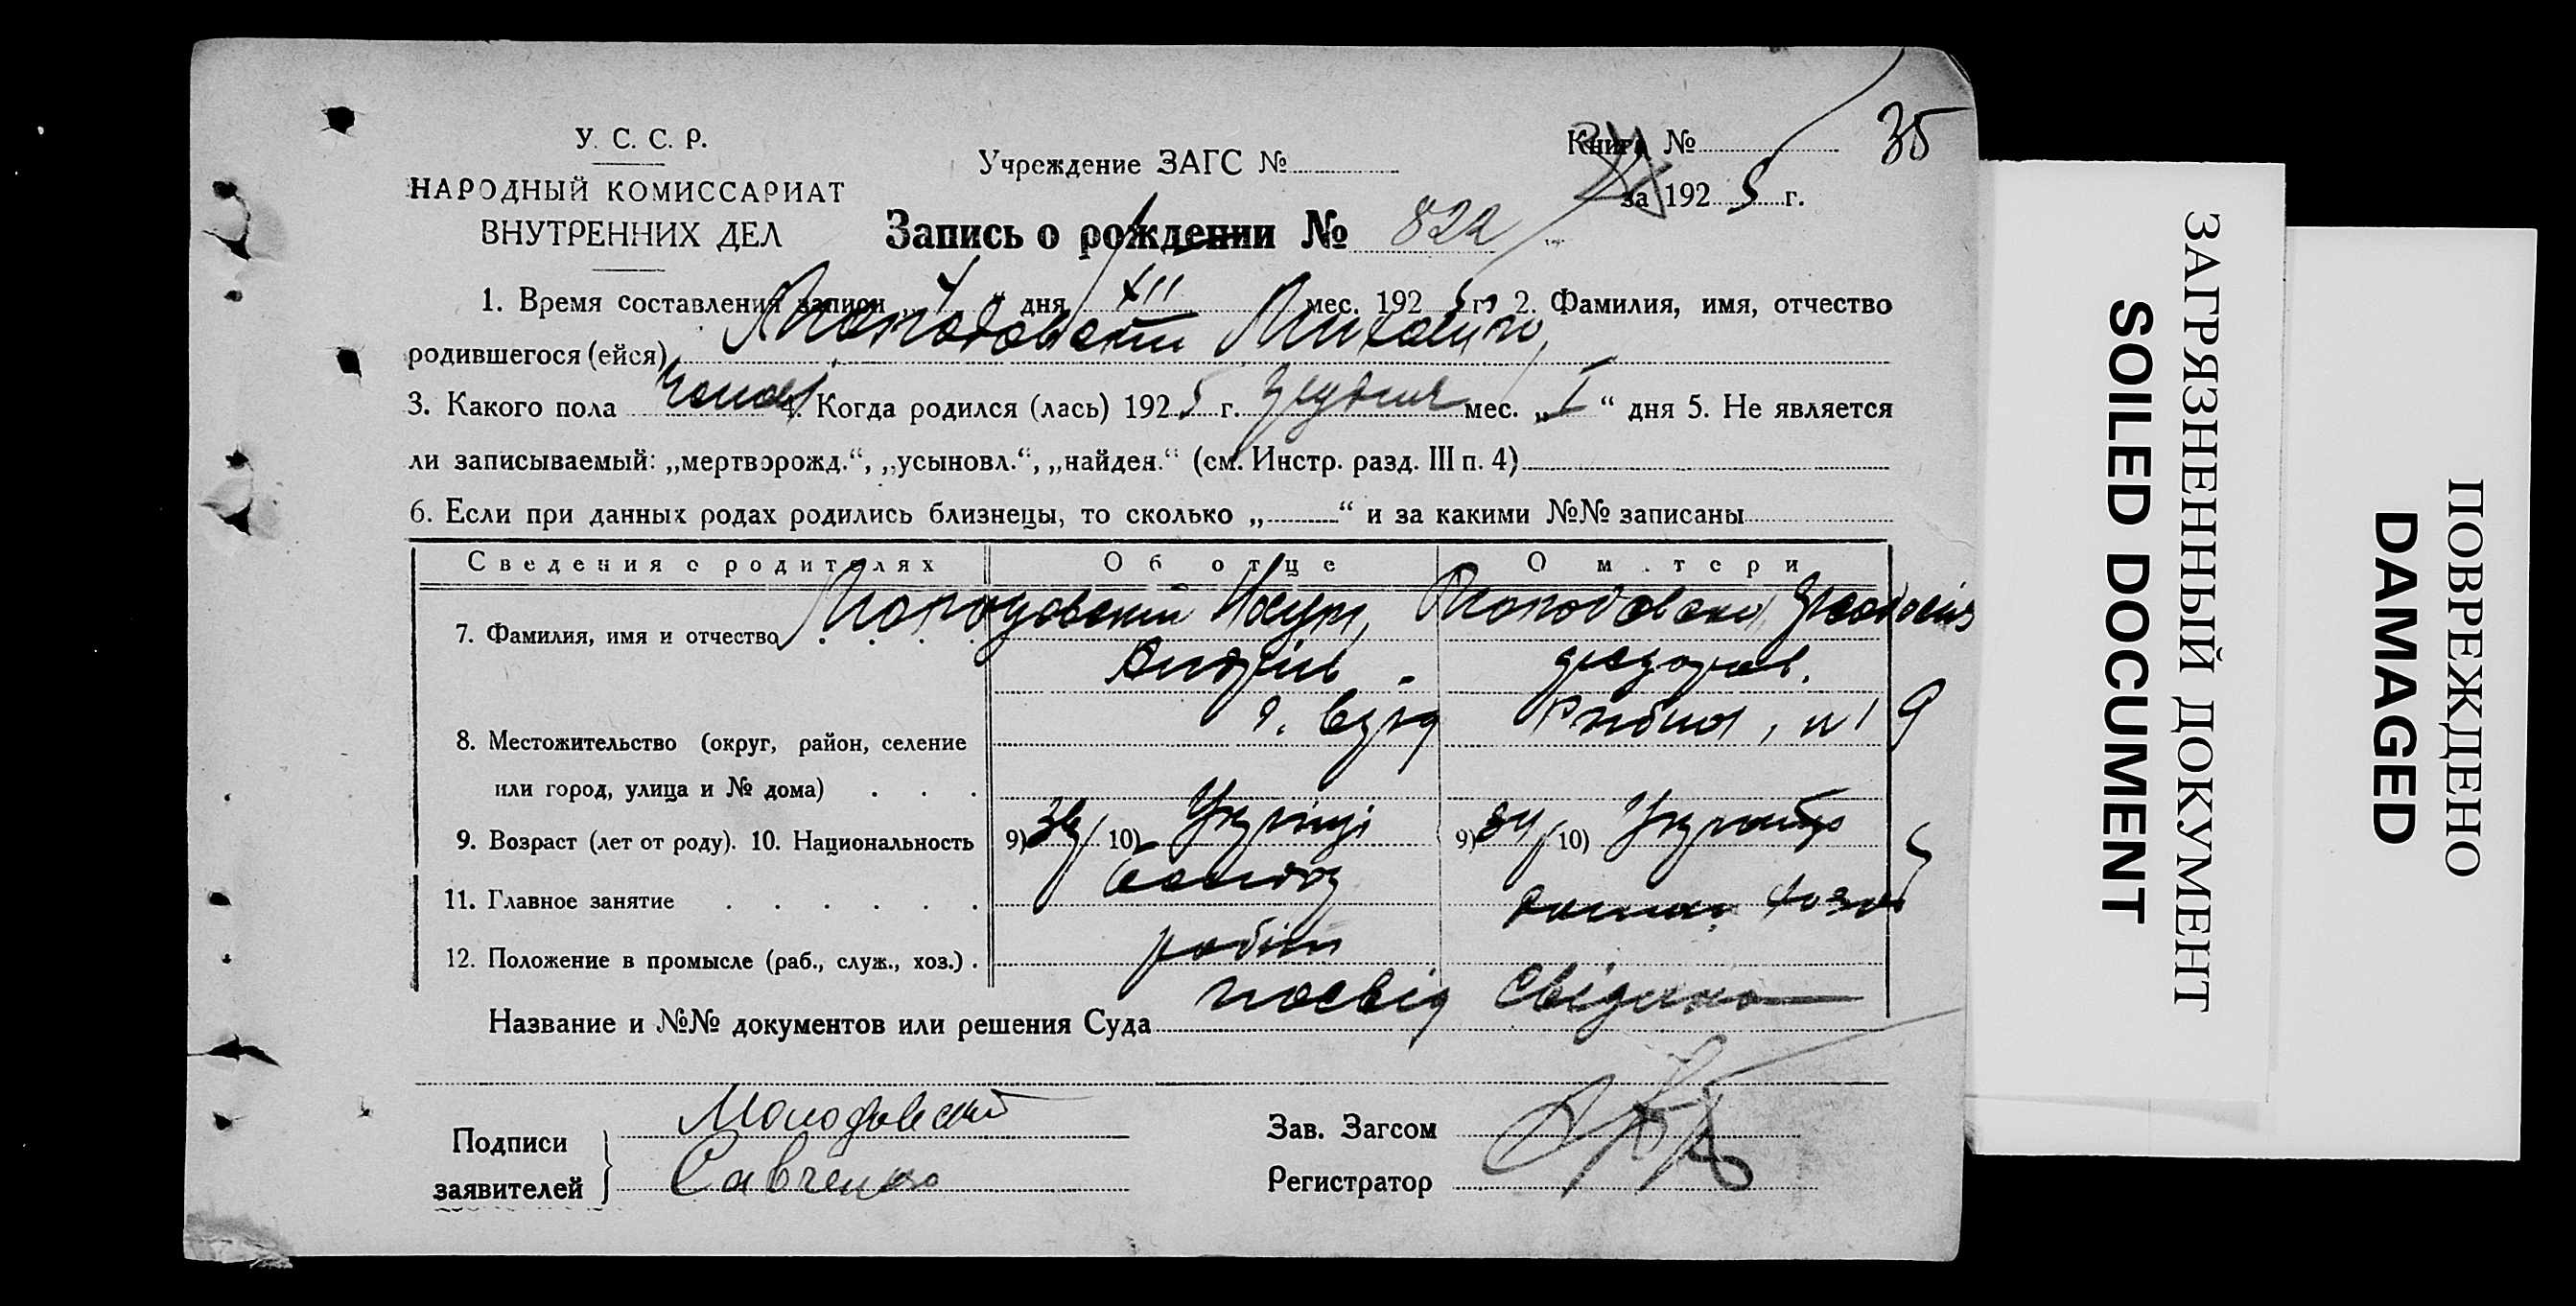 35
У. С. С. Р.
НАРОДНЫЙ КОМИССАРИАТ
ВНУТРЕННИХ ДЕЛ
Учреждение ЗАГС №
Книга №
за 1925 г.
Запись о рождении № 822
1. Время составления записи „4“ дня XII мес. 1925 г. 2. Фамилия, имя, отчество
родившегося (ейся) Молодовский Михайло
3. Какого пола чолов 4. Когда родился (лась) 1925 г. грудня мес. „I“ дня 5. Не является
ли записываемый: „мертворожд.“, „усыновл.“, „найден.“ (см. Инстр. разд. III п. 4)
6. Если при данных родах родились близнецы, то сколько „ “ и за какими №№ записаны
Сведения о родителях Об отце О м.тери
7. Фамилия, имя и отчество Молодовский Молодовска
Андрів
8. Местожительство (округ, район, селение
или город, улица и № дома)
9. Возраст (лет от роду). 10. Национальность 9) 10) Українці 9) 10)
11. Главное занятие домаш хозяй
12. Положение в промысле (раб., служ., хоз.) робітн
Название и №№ документов или решения Суда посвід
Подписи заявителей Молодовский
Савченко
Зав. Загсом
Регистратор
ЗАГРЯЗНЕННЫЙ ДОКУМЕНТ
SOILED DOCUMENT
ПОВРЕЖДЕНО
DAMAGED